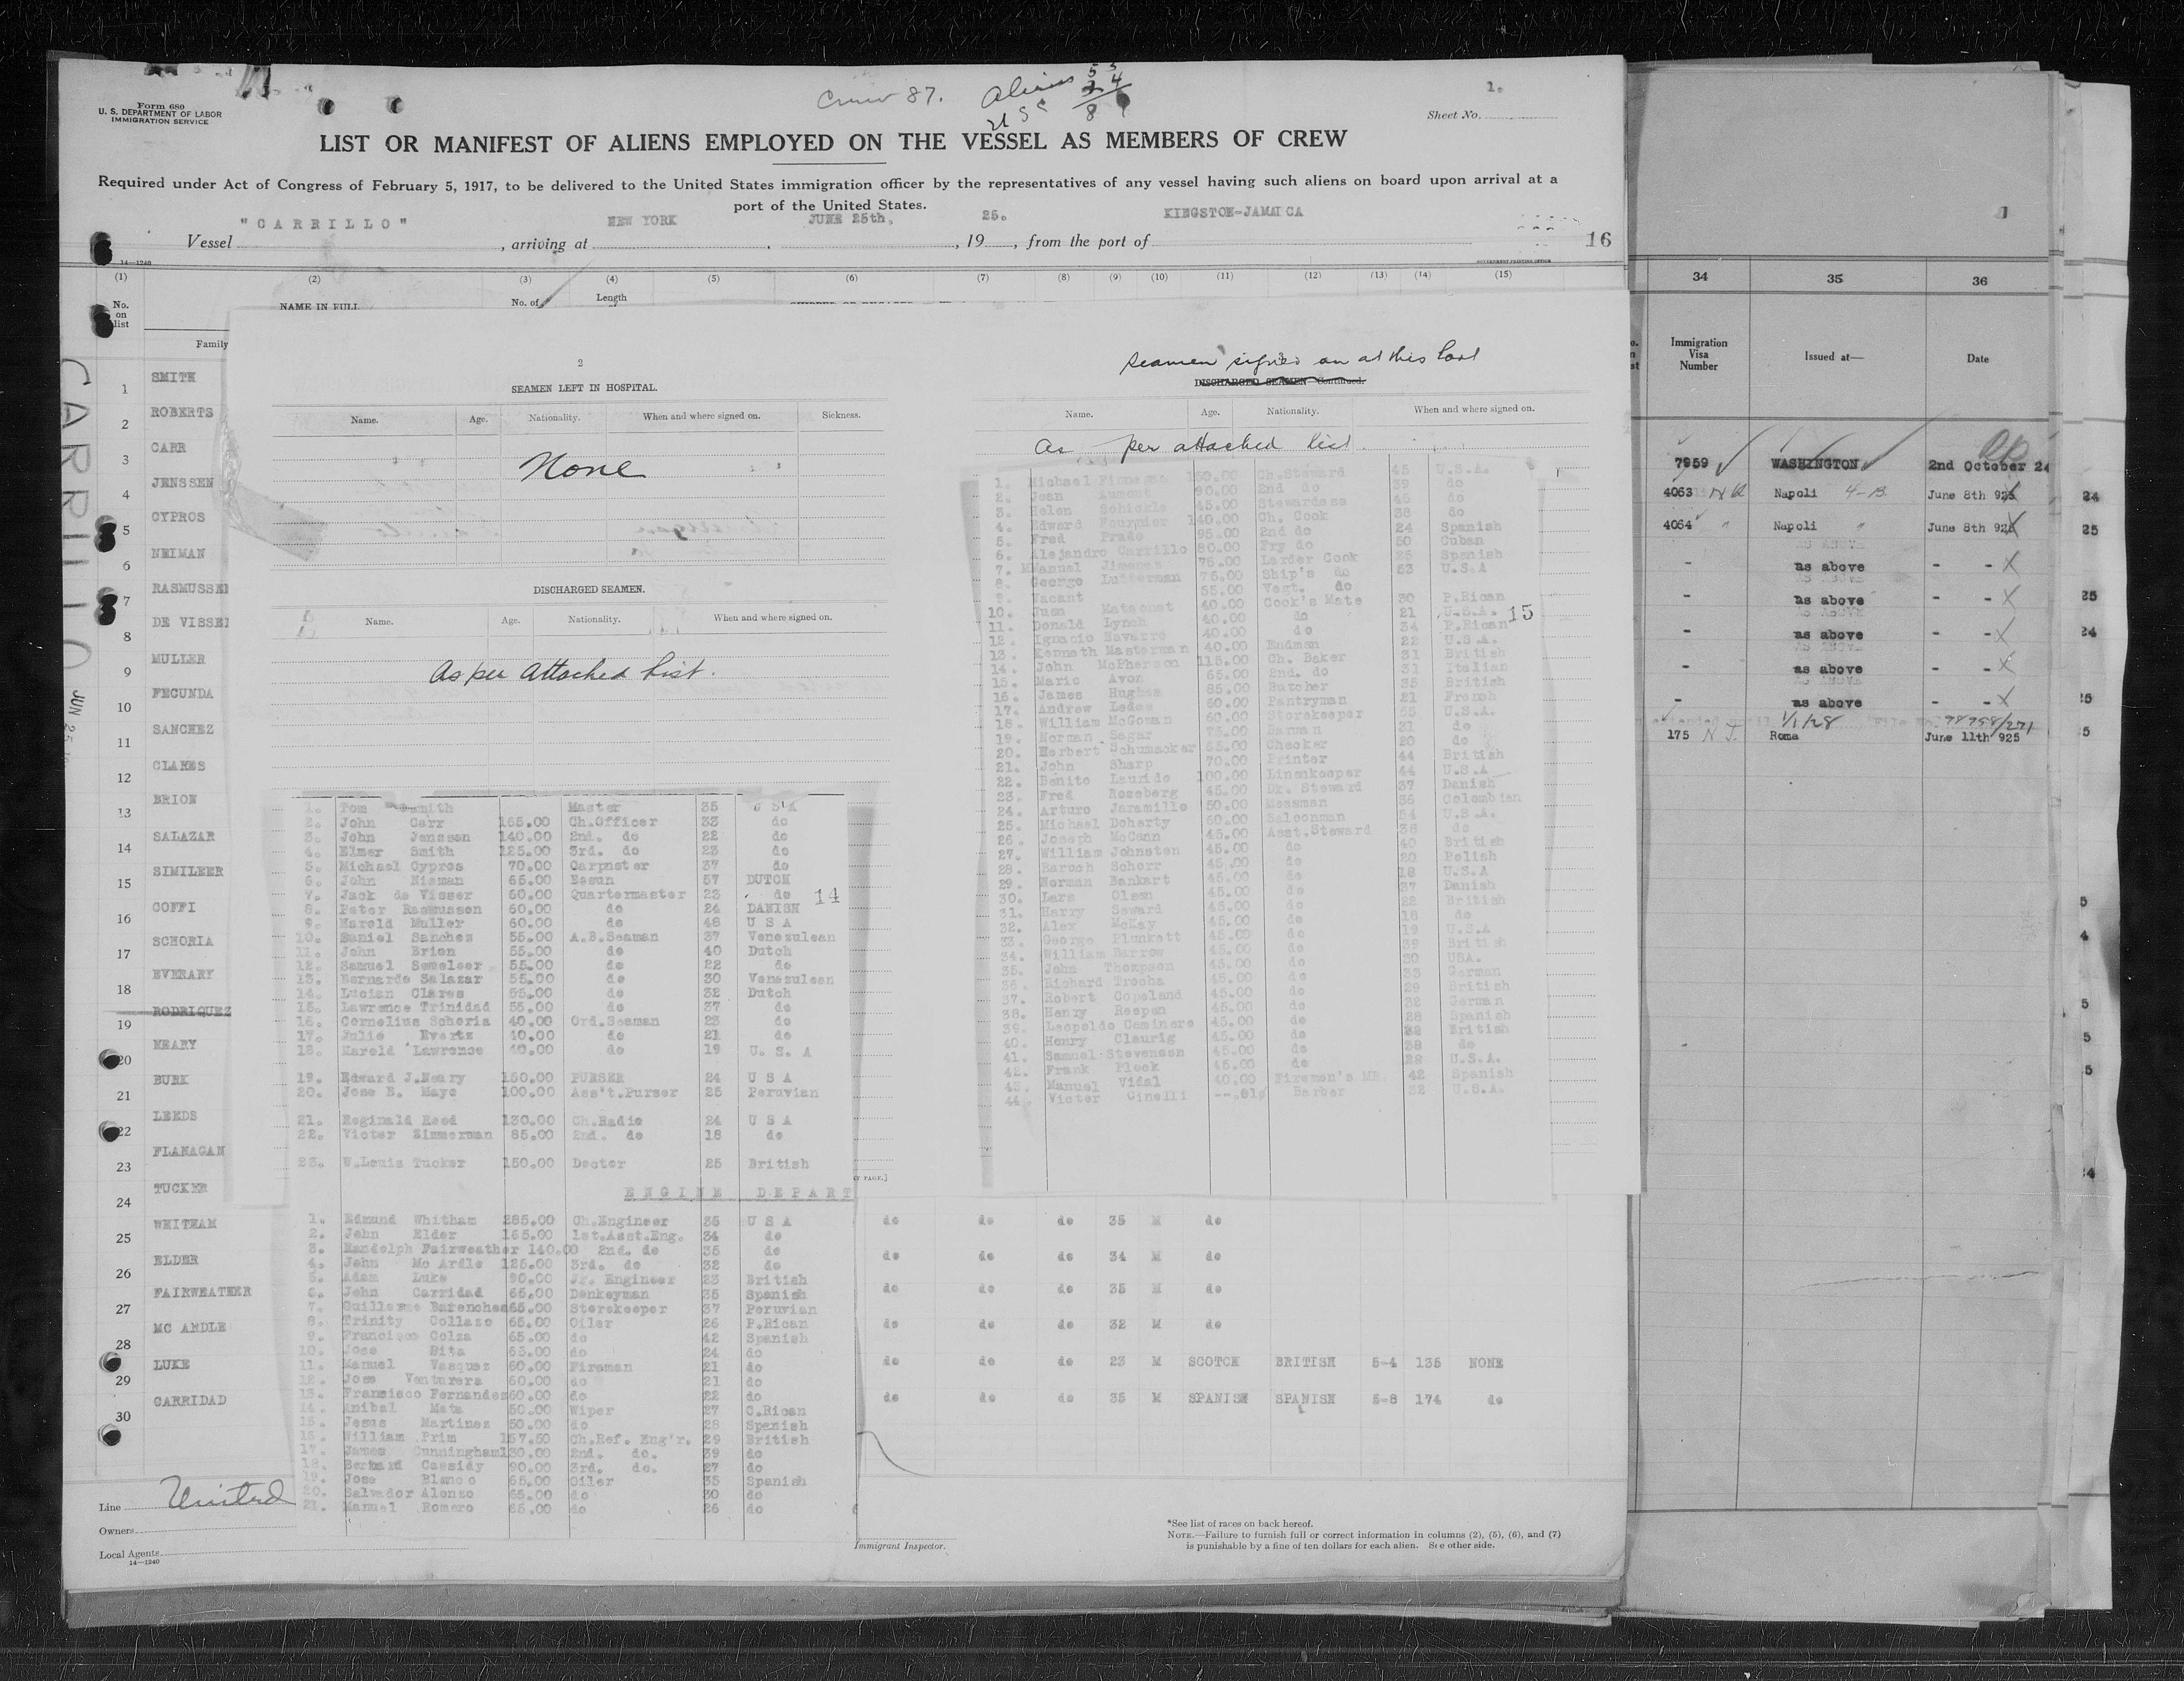 Form 680
U. S. DEPARTMENT OF LABOR
IMMIGRATION SERVICE
Crew 87. Aliens
1.
Sheet No.
LIST OR MANIFEST OF ALIENS EMPLOYED ON THE VESSEL AS MEMBERS OF CREW
Required under Act of Congress of February 5, 1917, to be delivered to the United States immigration officer by the representatives of any vessel having such aliens on board upon arrival at a
port of the United States.
Vessel "CARRILLO", arriving at NEW YORK, JUNE 25th, 1925., from the port of KINGSTON-JAMAICA
16
14—1240
GOVERNMENT PRINTING OFFICE
(1) (2) (3) (4) (5) (6) (7) (8) (9) (10) (11) (12) (13) (14) (15)
No. on list
NAME IN FULL
No. of
Length
Family
CARRILLO
JUN 25
1 SMITH
2 ROBERTS
3 CARR
4 JENSSEN
5 CYPROS
6 NEIMAN
7 RASMUSSEN
8 DE VISSE
9 MULLER
10 FECUNDA
11 SANCHEZ
12 CLARES
13 BRION
14 SALAZAR
15 SIMILEER
16 COFFI
17 SCHORIA
18 EVERARY
19 RODRIQUEZ
20 NEARY
21 BURK
22 LEEDS
23 FLANAGAN
24 TUCKER
25 WHITHAM
26 ELDER
27 FAIRWEATHER
28 MC ARDLE
29 LUKE
30 CARRIDAD
2
SEAMEN LEFT IN HOSPITAL.
Name. Age. Nationality. When and where signed on. Sickness.
None
DISCHARGED SEAMEN.
Name. Age. Nationality. When and where signed on.
As per Attached List.
1. Tom Smith Master 35 U S A
2. John Carr 165.00 Ch.Officer 33 do
3. John Jenssen 140.00 2nd. do 22 do
4. Elmer Smith 125.00 3rd. do 23 do
5. Michael Cypros 70.00 Carpnter 37 do
6. John Nieman 65.00 Bosun 57 DUTCH
7. Jack de Visser 60.00 Quartermaster 23 do
14
8. Peter Rasmussen 60.00 do 24 DANISH
9. Harold Muller 60.00 do 48 U S A
10. Daniel Sanchez 55.00 A.B.Seaman 37 Venezulean
11. John Brion 55.00 do 40 Dutch
12. Samuel Semeleer 55.00 do 22 do
13. Bernardo Salazar 55.00 do 30 Venezulean
14. Lucian Clares 55.00 do 32 Dutch
15. Lawrence Trinidad 55.00 do 37 do
16. Cornelius Schoria 40.00 Ord.Seaman 23 do
17. Julio Evertz 40.00 do 21 do
18. Harold Lawrence 40.00 do 19 U. S. A
19. Edward J.Neary 150.00 PURSER 24 U S A
20. Jose B. Mayc 100.00 Ass't.Purser 25 Peruvian
21. Reginald Reed 130.00 Ch.Radio 24 U S A
22. Victor Zimmerman 85.00 2nd. do 18 do
23. W.Louis Tucker 150.00 Doctor 25 British
ENGINE DEPART
1. Edmund Whitham 285.00 Ch.Engineer 35 U S A
2. John Elder 165.00 1st.Asst.Eng. 34 do
3. Randolph Fairweather 140.00 2nd. do 35 do
4. John Mc Ardle 125.00 3rd. do 32 do
5. Adam Luke 90.00 Jr. Engineer 23 British
6. John Carridad 65.00 Donkeyman 35 Spanish
7. Guillermo Barenchea 65.00 Storekeeper 37 Peruvian
8. Trinity Collazo 65.00 Oiler 26 P.Rican
9. Francisco Colza 65.00 do 42 Spanish
10. Jose Bita 65.00 do 24 do
11. Manuel Vasquez 60.00 Fireman 21 do
12. Jose Venturera 60.00 do 21 do
13. Fransisco Fernandes 60.00 do 22 do
14. Anibal Mata 50.00 Wiper 27 C.Rican
15. Jesus Martinez 50.00 do 28 Spanish
16. William Prim 157.50 Ch.Ref. Eng'r. 29 British
17. James Cunningham 130.00 2nd. do. 39 do
18. Bernard Cassidy 90.00 3rd. do. 27 do
19. Jose Blanco 65.00 Oiler 35 Spanish
20. Salvador Alonzo 65.00 do 30 do
21. Manuel Romero 65.00 do 26 do
Seamen signed on at this Port
DISCHARGED SEAMEN—Continued.
Name. Age. Nationality. When and where signed on.
As per attached list
1. Michael 150.00 Ch.Steward 45 U.S.A.
2. Jean Aumont 90.00 2nd do 39 do
3. Helen Schickle 45.00 Stewardess 46 do
4. Edward Fournier 140.00 Ch. Cook 38 do
5. Fred Prado 95.00 2nd do 24 Spanish
6. Alejandro Carrillo 80.00 Fry do 50 Cuban
7. Manuel Jimenez 75.00 Larder Cook 25 Spanish
8. George Lutterman 75.00 Ship's do 53 U.S.A
9. Vacant 55.00 Vegt. do
10. Juan Matconet 40.00 Cook's Mate 30 P.Rican
11. Donald Lynch 40.00 do 21 U.S.A.
15
12. Ignacio Navarro 40.00 do 34 P.Rican
13. Kenneth Masterman 40.00 Endman 22 U.S.A.
14. John McPherson 115.00 Ch. Baker 31 British
15. Mario Avon 65.00 2nd. do 31 Italian
16. James Hughes 85.00 Butcher 35 British
17. Andrew Ledee 60.00 Pantryman 21 French
18. William McGowan 60.00 Storekeeper 55 U.S.A.
19. Norman Sagar 75.00 Barman 21 do
20. Herbert Schumacker 55.00 Checker 20 do
21. John Sharp 70.00 Printer 44 British
22. Benito Laurido 100.00 Linenkeeper 44 U.S.A
23. Fred Rozeberg 45.00 Dk. Steward 37 Danish
24. Arturo Jaramillo 50.00 Messman 36 Colombian
25. Michael Doherty 60.00 Saloonman 54 U.S.A.
26. Joseph McCann 45.00 Asst.Steward 36 do
27. William Johnston 45.00 do 40 British
28. Baruch Schorr 45.00 do 20 Polish
29. Norman Bankart 45.00 do 18 U.S.A
30. Lars Olsen 45.00 do 37 Danish
31. Harry Seward 45.00 do 22 British
32. Alex McKay 45.00 do 18 do
33. George Plunkett 45.00 do 19 U.S.A
34. William Barrow 45.00 do 39 British
35. John Thompson 45.00 do 30 USA.
36. Richard Trocha 45.00 do 33 German
37. Robert Copeland 45.00 do 29 British
38. Henry Reepen 45.00 do 32 German
39. Leopoldo Caminero 45.00 do 28 Spanish
40. Henry Claurig 45.00 do British
41. Samuel Stevenson 45.00 do 38 do
42. Frank Pleck 45.00 do 28 U.S.A.
43. Manuel Vidal 40.00 Firemen's MR. 42 Spanish
44. Victor Cinelli --.01 Barber 32 U.S.A.
do do do 35 M do
do do do 34 M do
do do do 35 M do
do do do 32 M do
do do do 23 M SCOTCH BRITISH 5-4 135 NONE
do do do 35 M SPANISH SPANISH 5-8 174 do
Line United
Owners
Local Agents
14—1240
Immigrant Inspector.
*See list of races on back hereof.
NOTE.—Failure to furnish full or correct information in columns (2), (5), (6), and (7)
is punishable by a fine of ten dollars for each alien. See other side.
34 35 36
Immigration Visa Number
Issued at—
Date
7959 WASHINGTON 2nd October 24
4063 Napoli 4-B June 8th 925
24
4064 " Napoli " June 8th 925
25
- as above - -
- as above - -
25
- as above - -
24
- as above - -
- as above - -
25
1/1/28 File No. 98758/271
175 N J. Roma June 11th 925
5
5
4
5
5
5
24